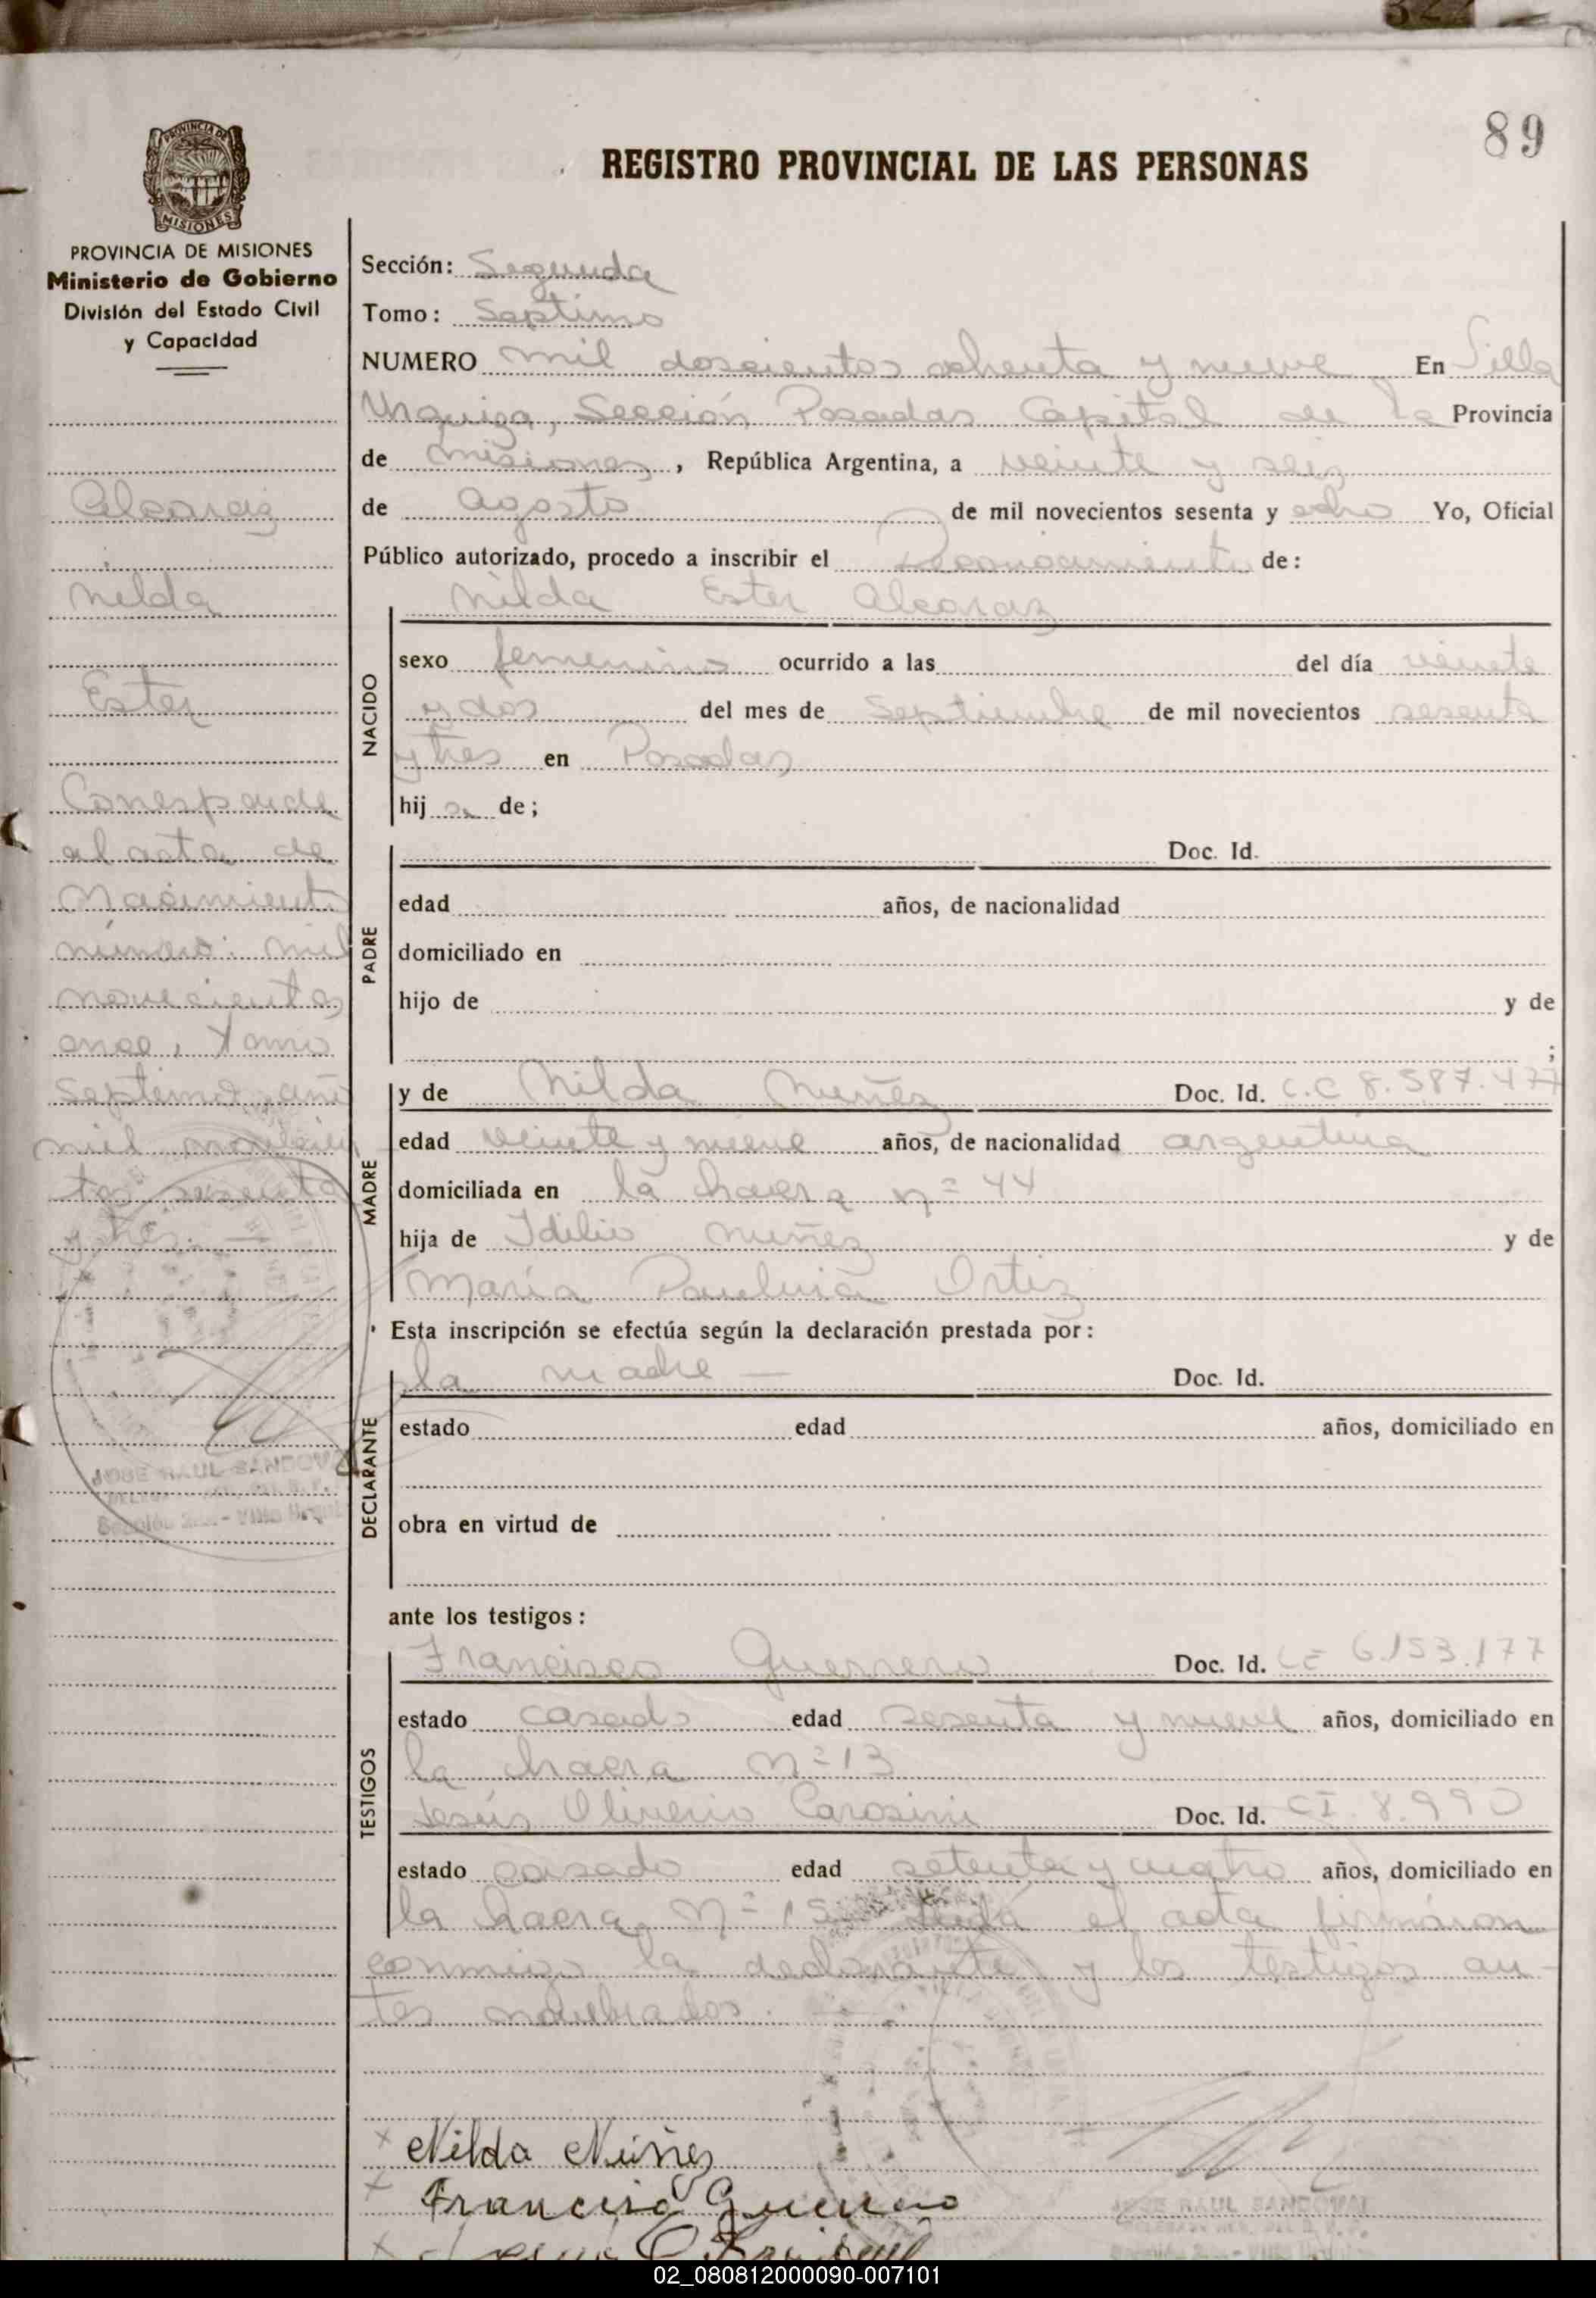 89
REGISTRO PROVINCIAL DE LAS PERSONAS
PROVINCIA DE MISIONES
Ministerio de Gobierno
División del Estado Civil
y Capacidad
Alcaraz
Nilda
Ester
Corresponde
al acta de
Nacimiento
número: mil
novecientos
once, Tomo
Septimo, año
mil novecien
tos sesenta
y tres. —
JOSE RAUL SANDOVAL
Sección: Segunda
Tomo: Septimo
NUMERO mil doscientos ochenta y nueve En Villa
Urquiza, Sección Posadas Capital de la Provincia
de Misiones, República Argentina, a veinte y seis
de Agosto de mil novecientos sesenta y ocho Yo, Oficial
Público autorizado, procedo a inscribir el Reconocimiento de:
Nilda Ester Alcaraz
NACIDO
sexo femenino ocurrido a las del día veinte
y dos del mes de Septiembre de mil novecientos sesenta
y tres en Posadas
hij a de;
PADRE
Doc. Id.
edad años, de nacionalidad
domiciliado en
hijo de y de
;
MADRE
y de Nilda Nuñez Doc. Id. C.C 8.587.477
edad veinte y nueve años, de nacionalidad argentina
domiciliada en la chacra nº 44
hija de Idilio Nuñez y de
María Paulina Ortiz
Esta inscripción se efectúa según la declaración prestada por:
DECLARANTE
la madre — Doc. Id.
estado edad años, domiciliado en
obra en virtud de
ante los testigos:
TESTIGOS
Francisco Guerrero Doc. Id. CE 6.153.177
estado casado edad sesenta y nueve años, domiciliado en
la chacra nº 13
Jesús Oliverio Carosini Doc. Id. CI. 8.990
estado casado edad setenta y cuatro años, domiciliado en
la chacra nº el acta firmáron
conmigo la declarante y los testigos an-
tes nombrados.
x Nilda Núñez
x Francisco Guerrero
x
JOSE RAUL SANDOVAL
02_080812000090-007101